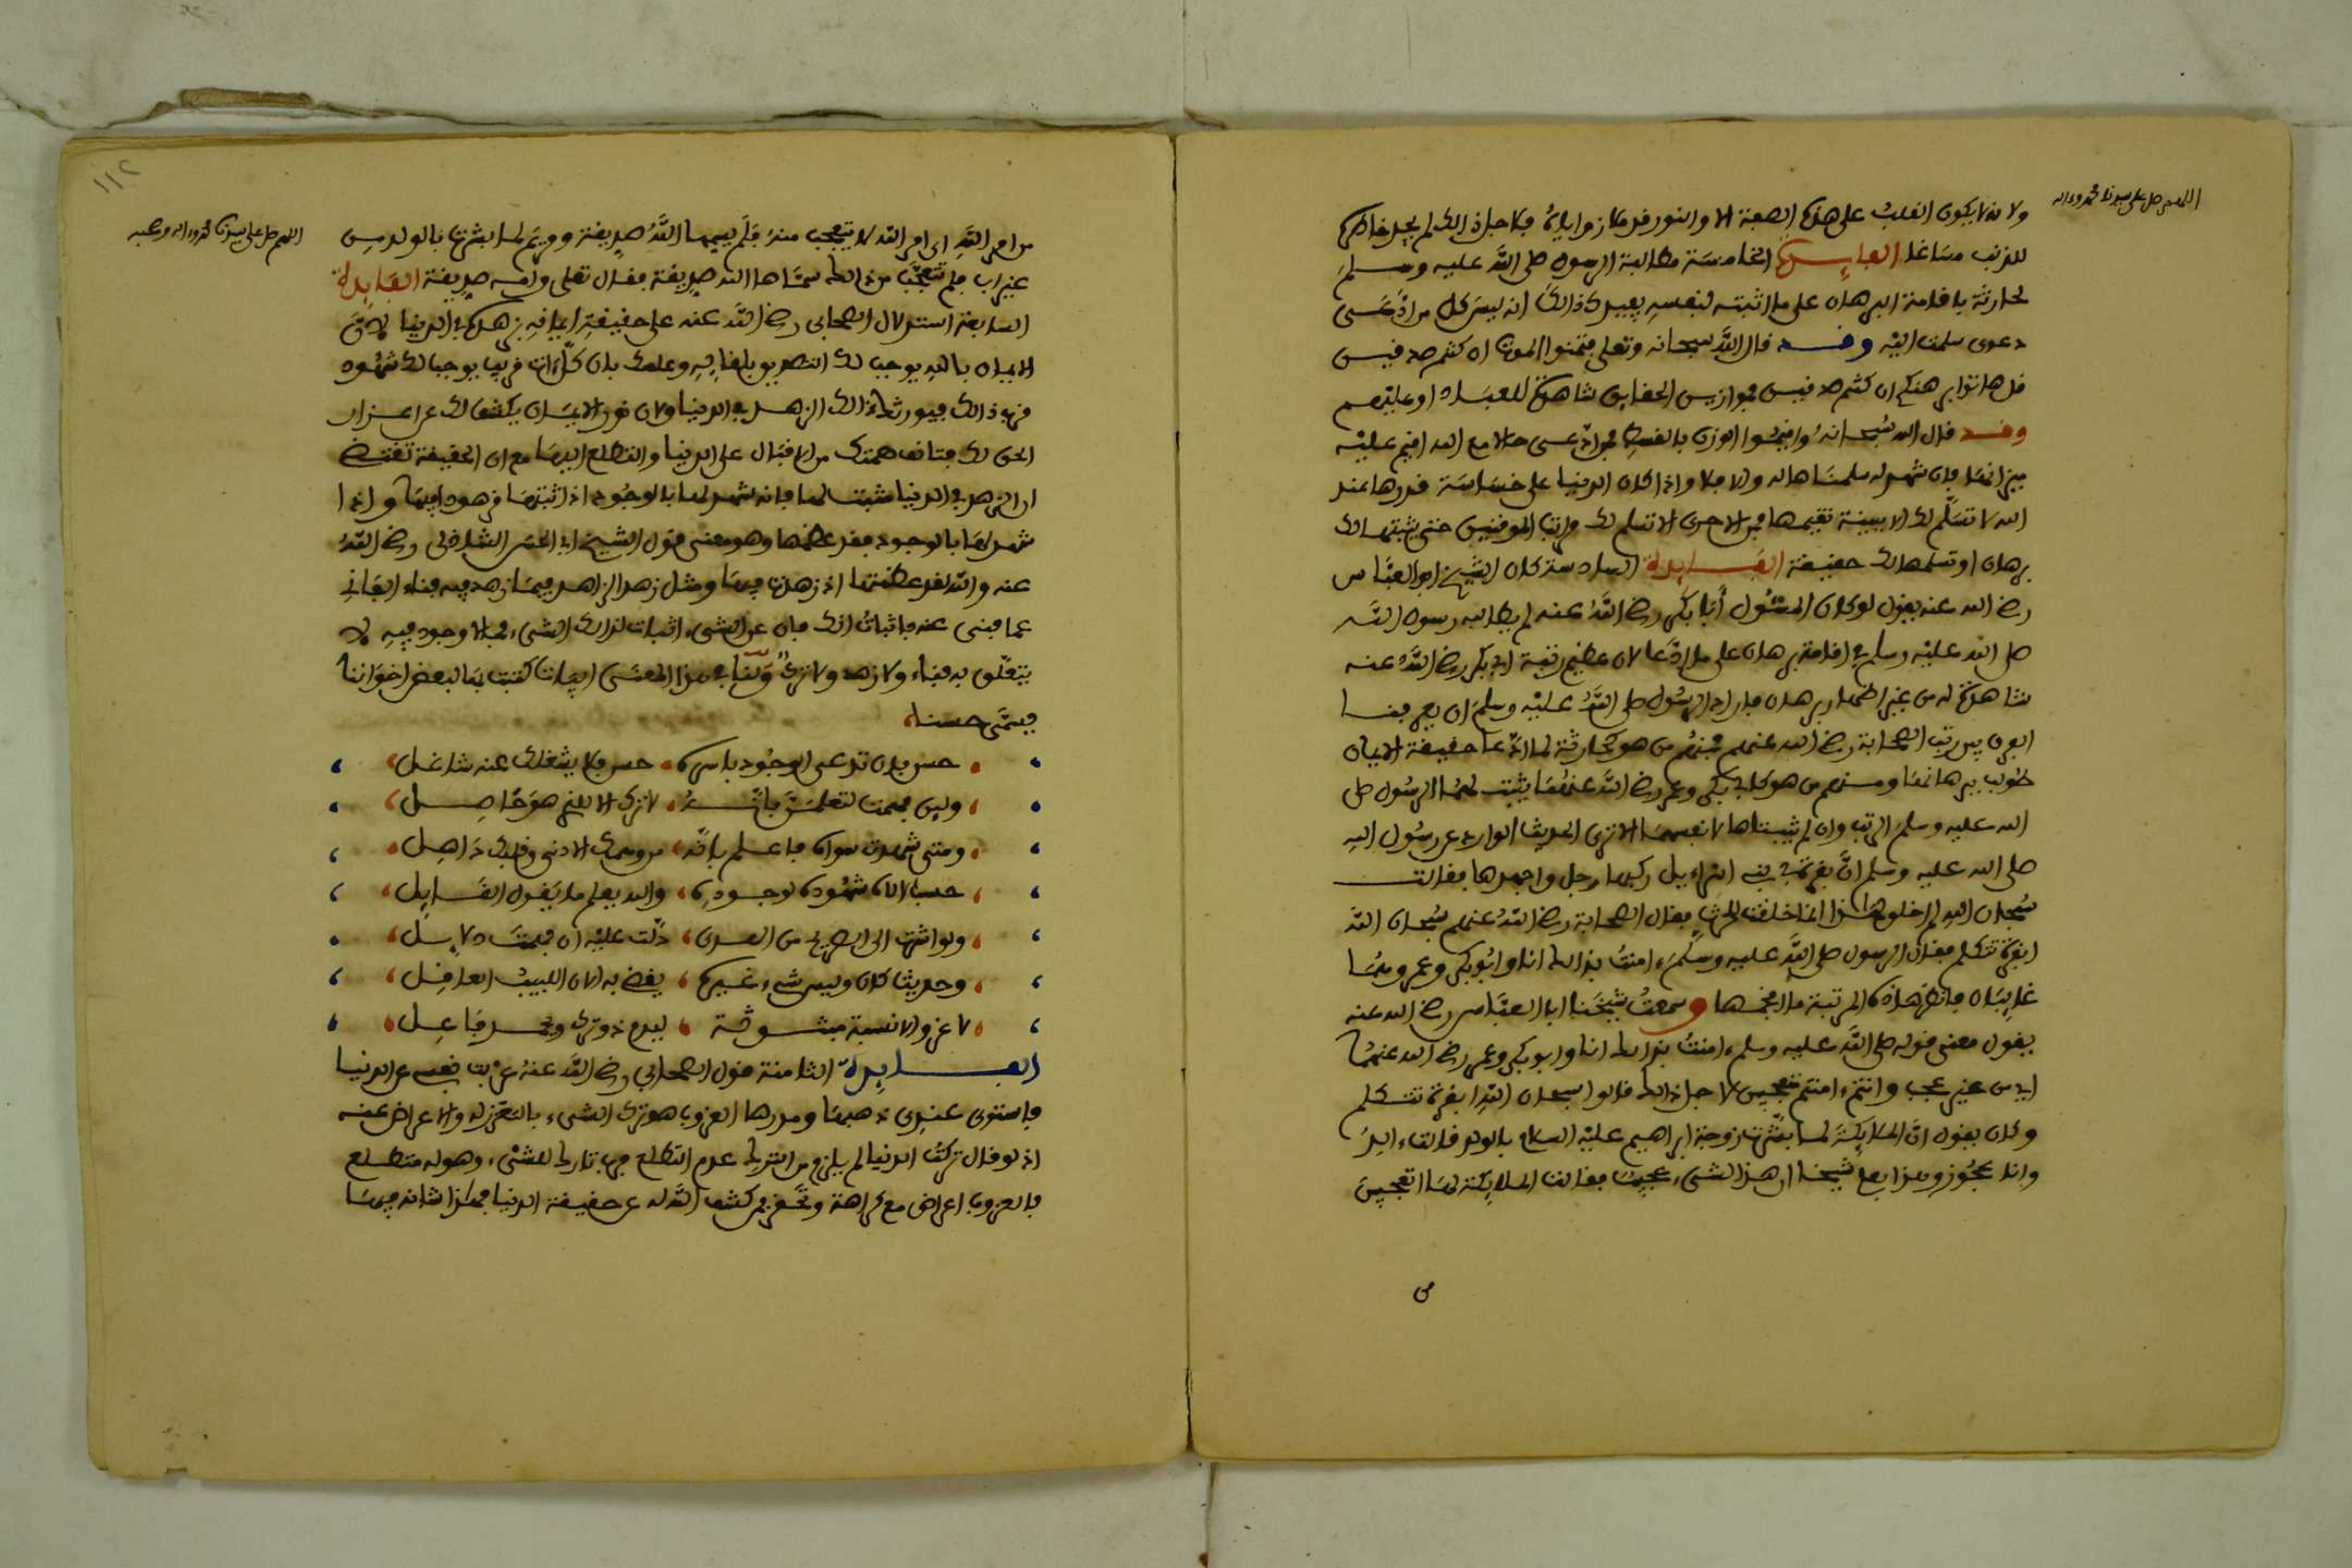 اللهم صل على سيدنا محمد وءاله
ولانه لا يكون القلب على هذه الصفة الا والنور قد مازج اياه فلاجل ذالك لم يجد خاطره
للذنب مساغا الفايدة الخامسة مطالبة الرسول صلى الله عليه وسلم
لحارثة باقامة البرهان على ما اثبته لنفسه يفيدك ذالك انه ليس كل من ادعى
دعوى سلمت اليه وقد قال الله سبحانه وتعلى فتمنوا الموت ان كنتم صدقين
قل هاتوا برهنكم ان كنتم صدقين فموازين الحقايق شاهدة للعباد او عليهم
وقد قال الله سبحانه واقيموا الوزن بالقسط فمن ادعى حالا مع الله اقيم عليه
ميزانها فان شهد له سلمناها له والا فلا واذا كان الدنيا على خساسة قدرها عند
الله لا تسلم لك الا ببينة تقيمها فبالاحرى الا تسلم لك مراتب الموقنين حتى يثبتها لك
برهان او تسلمها لك حقيقة الفايدة السادسة كان الشيخ ابو العباس
رضي الله عنه يقول لو كان المسئول أبا بكر رضي الله عنه لم يطالبه رسول الله
صلى الله عليه وسلم في اقامة برهان على ما ادعا لان عظيم رتبة ابي بكر رضي الله عنه
شاهدة له من غير اظهار برهان فاراد الرسول صلى الله عليه وسلم ان يعرفنا
الفرق بين رتب الصحابة رضي الله عنهم فمنهم من هو كحارثة لما ادعا حقيقة الايمان
طولب ببرهانها ومنهم من هو كابي بكر وعمر رضي الله عنهما يثبت لهما الرسول صلى
الله عليه وسلم الرتب وان لم يثبتاها لانفسهما الا ترى الحديث الوارد عن رسول الله
صلى الله عليه وسلم ان بقرة في بني اسراءيل ركبها رجل واجهدها فقالت
سبحان الله لم اخلق لهذا انما خلقت للحرث فقال الصحابة رضي الله عنهم سبحان الله
ابقرة تتكلم فقال الرسول صلى الله عليه وسلم ءامنت بذالك انا وابو بكر وعمر وهما
غايبان فانظر هذه المرتبة ما افخمها وسمعت شيخنا ابا العباس رضي الله عنه
يقول معنى قوله صلى الله عليه وسلم ءامنت بذالك انا وابو بكر وعمر رضي الله عنهما
اي من غير عجب وانتم ءامنتم متعجبين لاجل ذالك قالوا سبحان الله ابقرة تتكلم
وكان يقول ان الملايكة لما بشرت زوجة ابراهيم عليه السلام بالولد قالت ءالد
وانا عجوز وهذا بعلي شيخا ان هذا لشيء عجيب فقالت الملايكة لها اتعجبين
من
١١٢
اللهم صل على سيدنا محمد وءاله وصحبه
من امر الله اي امر الله لا يتعجب منه فلم يسمها الله صديقة ومريم لما بشرت بالولد من
غير اب فلم تتعجب من ذالك سماها الله صديقة فقال تعلى وامه صديقة الفايدة
السابعة استدلال الصحابي رضي الله عنه على حقيقة ايمانه بزهده في الدنيا لان
الايمان بالله يوجب لك التصديق بلقايه وعلمك بان كل ءات قريب يوجب لك شهود
قرب ذالك فيورثك ذالك الزهد في الدنيا ولان نور الايمان يكشف لك عن اعزاز
الحق لك فتانف همتك من الاقبال على الدنيا والتطلع اليها مع ان الحقيقة تقتضي
ان الزهد في الدنيا مثبت لها فانه شهد لها بالوجود اذ اثبتها مزهودا فيها واذا
شهد لها بالوجود فقد عظمها وهو معنى قول الشيخ ابي الحسن الشاذلي رضي الله
عنه والله لقد عظمتها اذ زهدت فيها ومثل زهد الزاهد فيما زهد فيه فناء الفاني
عما فنى عنه فاثبات انك فان عن الشيء اثبات لذالك الشيء فما لا وجود فيه لا
يتعلق به فناء ولا زهد ولا ترك ولنا في هذا المعنى ابيات كتبت بها لبعض اخواننا
يسمى حسنا
حسن بان تدع الوجود باسره حسن فلا يشغلك عنه شاغل
ولين فهمت لتعلمن بانه لا ترك الا للذي هو حاصل
ومتى شهدت سواه فاعلم بانه من وهمك الادنى وقلبك ذاهل
حسب الاله شهوده لوجوده والله يعلم ما يقول القايل
ولو اشرت الى الصريح من الهدى دلت عليه ان فهمت دلايل
وحديث كان وليس شيء غيره يقضي به الان اللبيب العاقل
لا غرو الا نسبة مثبوتة ليدم ذو ترك ويحمد فاعل
الفايدة الثامنة قول الصحابي رضي الله عنه عزفت نفسي عن الدنيا
فاستوى عندي ذهبها ومدرها العزوب هو ترك الشيء بالتعزز له والاعراض عنه
اذ لو قال تركت الدنيا لم يلزم من الترك عدم التطلع فرب تارك للشيء وهو له متطلع
فالعزوب اعراض مع كراهة وتحقير فمن كشف الله له عن حقيقة الدنيا فهكذا شانه فيها